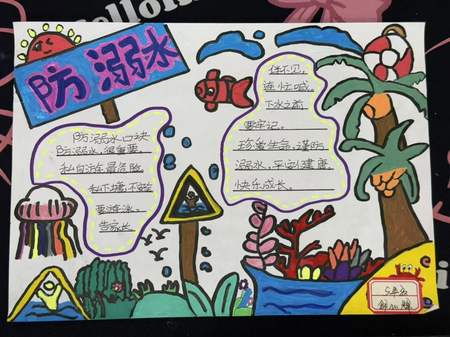 防溺水
防溺水口诀
防溺水,很重要
私自游泳最危险
私下塘,不安全
要游泳,
告家长
连忙喊,
下水之前
要牢记。
珍爱生命,谨防
溺水,平安健康,
快乐成长。
5年级